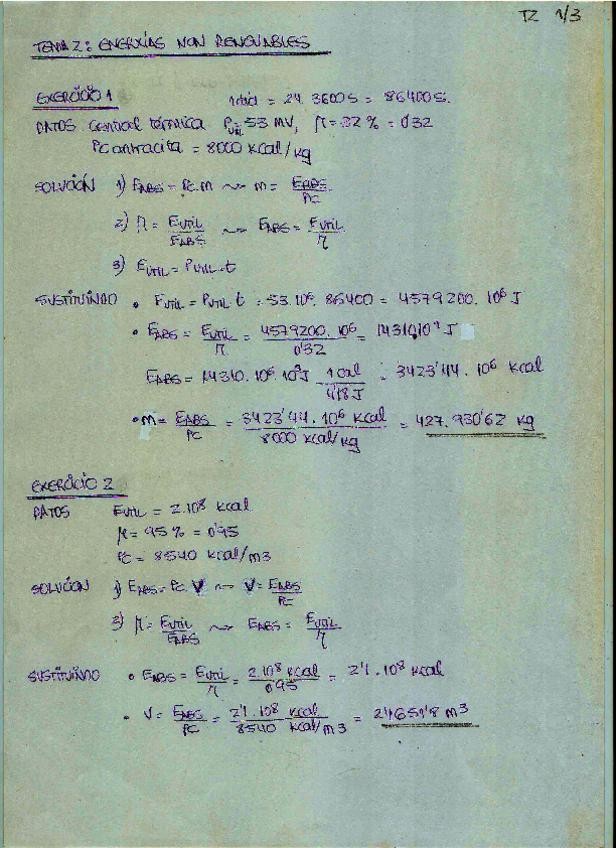 TZ 1/3
TEMA 2: ENERXÍAS NON RENOVABLES
EXERCICIO 1 1 día = 24. 3600 s = 86400 s.
DATOS Central térmica Pútil = 53 MW, η = 32 % = 0'32
PC antracita = 8000 Kcal/kg
SOLUCIÓN 1) EABS = PC.m ⤳ m = EABS/PC
2) η = EUTIL/EABS ⤳ EABS = EUTIL/η
3) EUTIL = PUTIL.t
SUSTITUÍNDO • EUTIL = PUTIL t = 53.10⁶. 86400 = 4579200. 10⁶ J
• EABS = EUTIL/η = 4579200. 10⁶/0'32 = J
EABS = 1 cal/4'18 J = 3423'44. 10⁶ Kcal
• m = EABS/PC = 3423'44. 10⁶ Kcal/8000 Kcal/kg = 427.930'62 kg
EXERCICIO 2
DATOS EUTIL = 2.10⁸ Kcal
η = 95 % = 0'95
PC = 8540 Kcal/m3
SOLUCIÓN 1) EABS = PC V ⤳ V = EABS/PC
2) η = EUTIL/EABS ⤳ EABS = EUTIL/η
SUSTITUÍNDO • EABS = EUTIL/η = 2.10⁸ Kcal/0'95 = 2'1. 10⁸ Kcal
• V = EABS/PC = 2'1. 10⁸ Kcal/8540 Kcal/m3 = m3